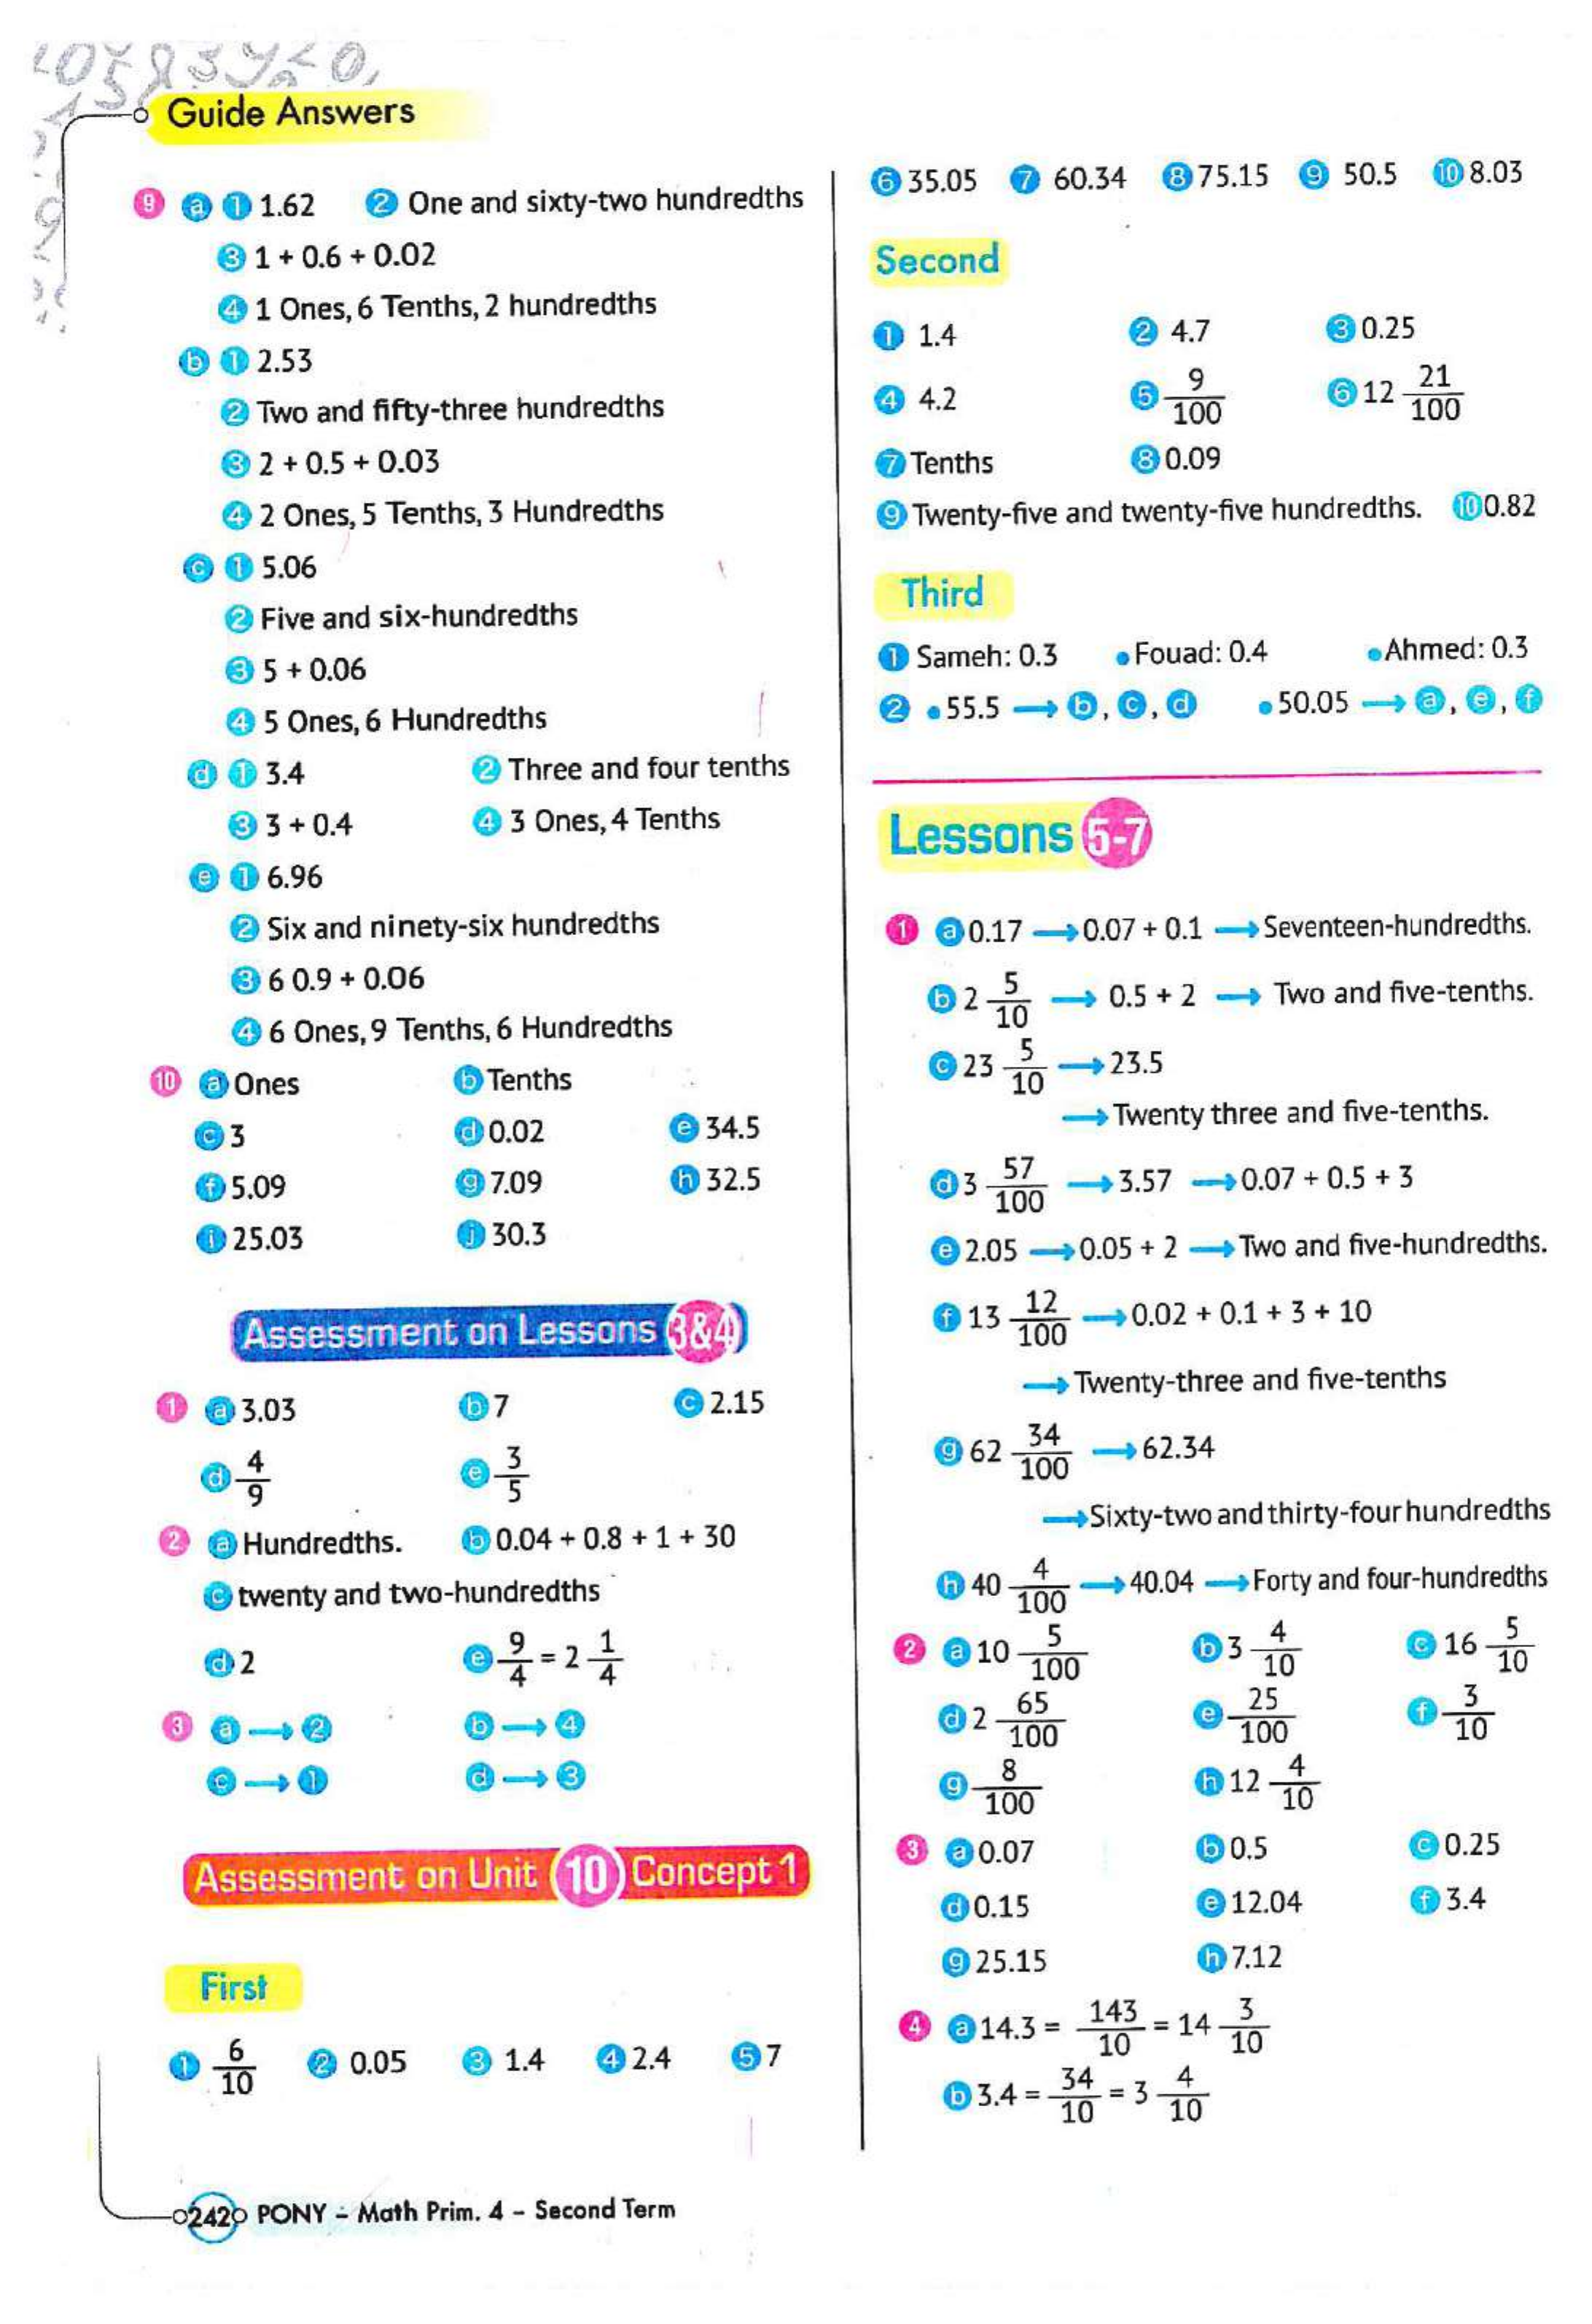 Guide Answers
9 a 1 1.62 2 One and sixty-two hundredths
3 1 + 0.6 + 0.02
4 1 Ones, 6 Tenths, 2 hundredths
b 1 2.53
2 Two and fifty-three hundredths
3 2 + 0.5 + 0.03
4 2 Ones, 5 Tenths, 3 Hundredths
c 1 5.06
2 Five and six-hundredths
3 5 + 0.06
4 5 Ones, 6 Hundredths
d 1 3.4 2 Three and four tenths
3 3 + 0.4 4 3 Ones, 4 Tenths
e 1 6.96
2 Six and ninety-six hundredths
3 6 0.9 + 0.06
4 6 Ones, 9 Tenths, 6 Hundredths
10 a Ones b Tenths
c 3 d 0.02 e 34.5
f 5.09 g 7.09 h 32.5
i 25.03 j 30.3
Assessment on Lessons 3&4
1 a 3.03 b 7 c 2.15
d 4/9 e 3/5
2 a Hundredths. b 0.04 + 0.8 + 1 + 30
c twenty and two-hundredths
d 2 e 9/4 = 2 1/4
3 a → 2 b → 4
c → 1 d → 3
Assessment on Unit 10 Concept 1
First
1 6/10 2 0.05 3 1.4 4 2.4 5 7
6 35.05 7 60.34 8 75.15 9 50.5 10 8.03
Second
1 1.4 2 4.7 3 0.25
4 4.2 5 9/100 6 12 21/100
7 Tenths 8 0.09
9 Twenty-five and twenty-five hundredths. 10 0.82
Third
1 Sameh: 0.3 • Fouad: 0.4 • Ahmed: 0.3
2 • 55.5 → b, c, d • 50.05 → a, e, f
Lessons 5-7
1 a 0.17 → 0.07 + 0.1 → Seventeen-hundredths.
b 2 5/10 → 0.5 + 2 → Two and five-tenths.
c 23 5/10 → 23.5
→ Twenty three and five-tenths.
d 3 57/100 → 3.57 → 0.07 + 0.5 + 3
e 2.05 → 0.05 + 2 → Two and five-hundredths.
f 13 12/100 → 0.02 + 0.1 + 3 + 10
→ Twenty-three and five-tenths
g 62 34/100 → 62.34
→ Sixty-two and thirty-four hundredths
h 40 4/100 → 40.04 → Forty and four-hundredths
2 a 10 5/100 b 3 4/10 c 16 5/10
d 2 65/100 e 25/100 f 3/10
g 8/100 h 12 4/10
3 a 0.07 b 0.5 c 0.25
d 0.15 e 12.04 f 3.4
g 25.15 h 7.12
4 a 14.3 = 143/10 = 14 3/10
b 3.4 = 34/10 = 3 4/10
242 PONY - Math Prim. 4 - Second Term